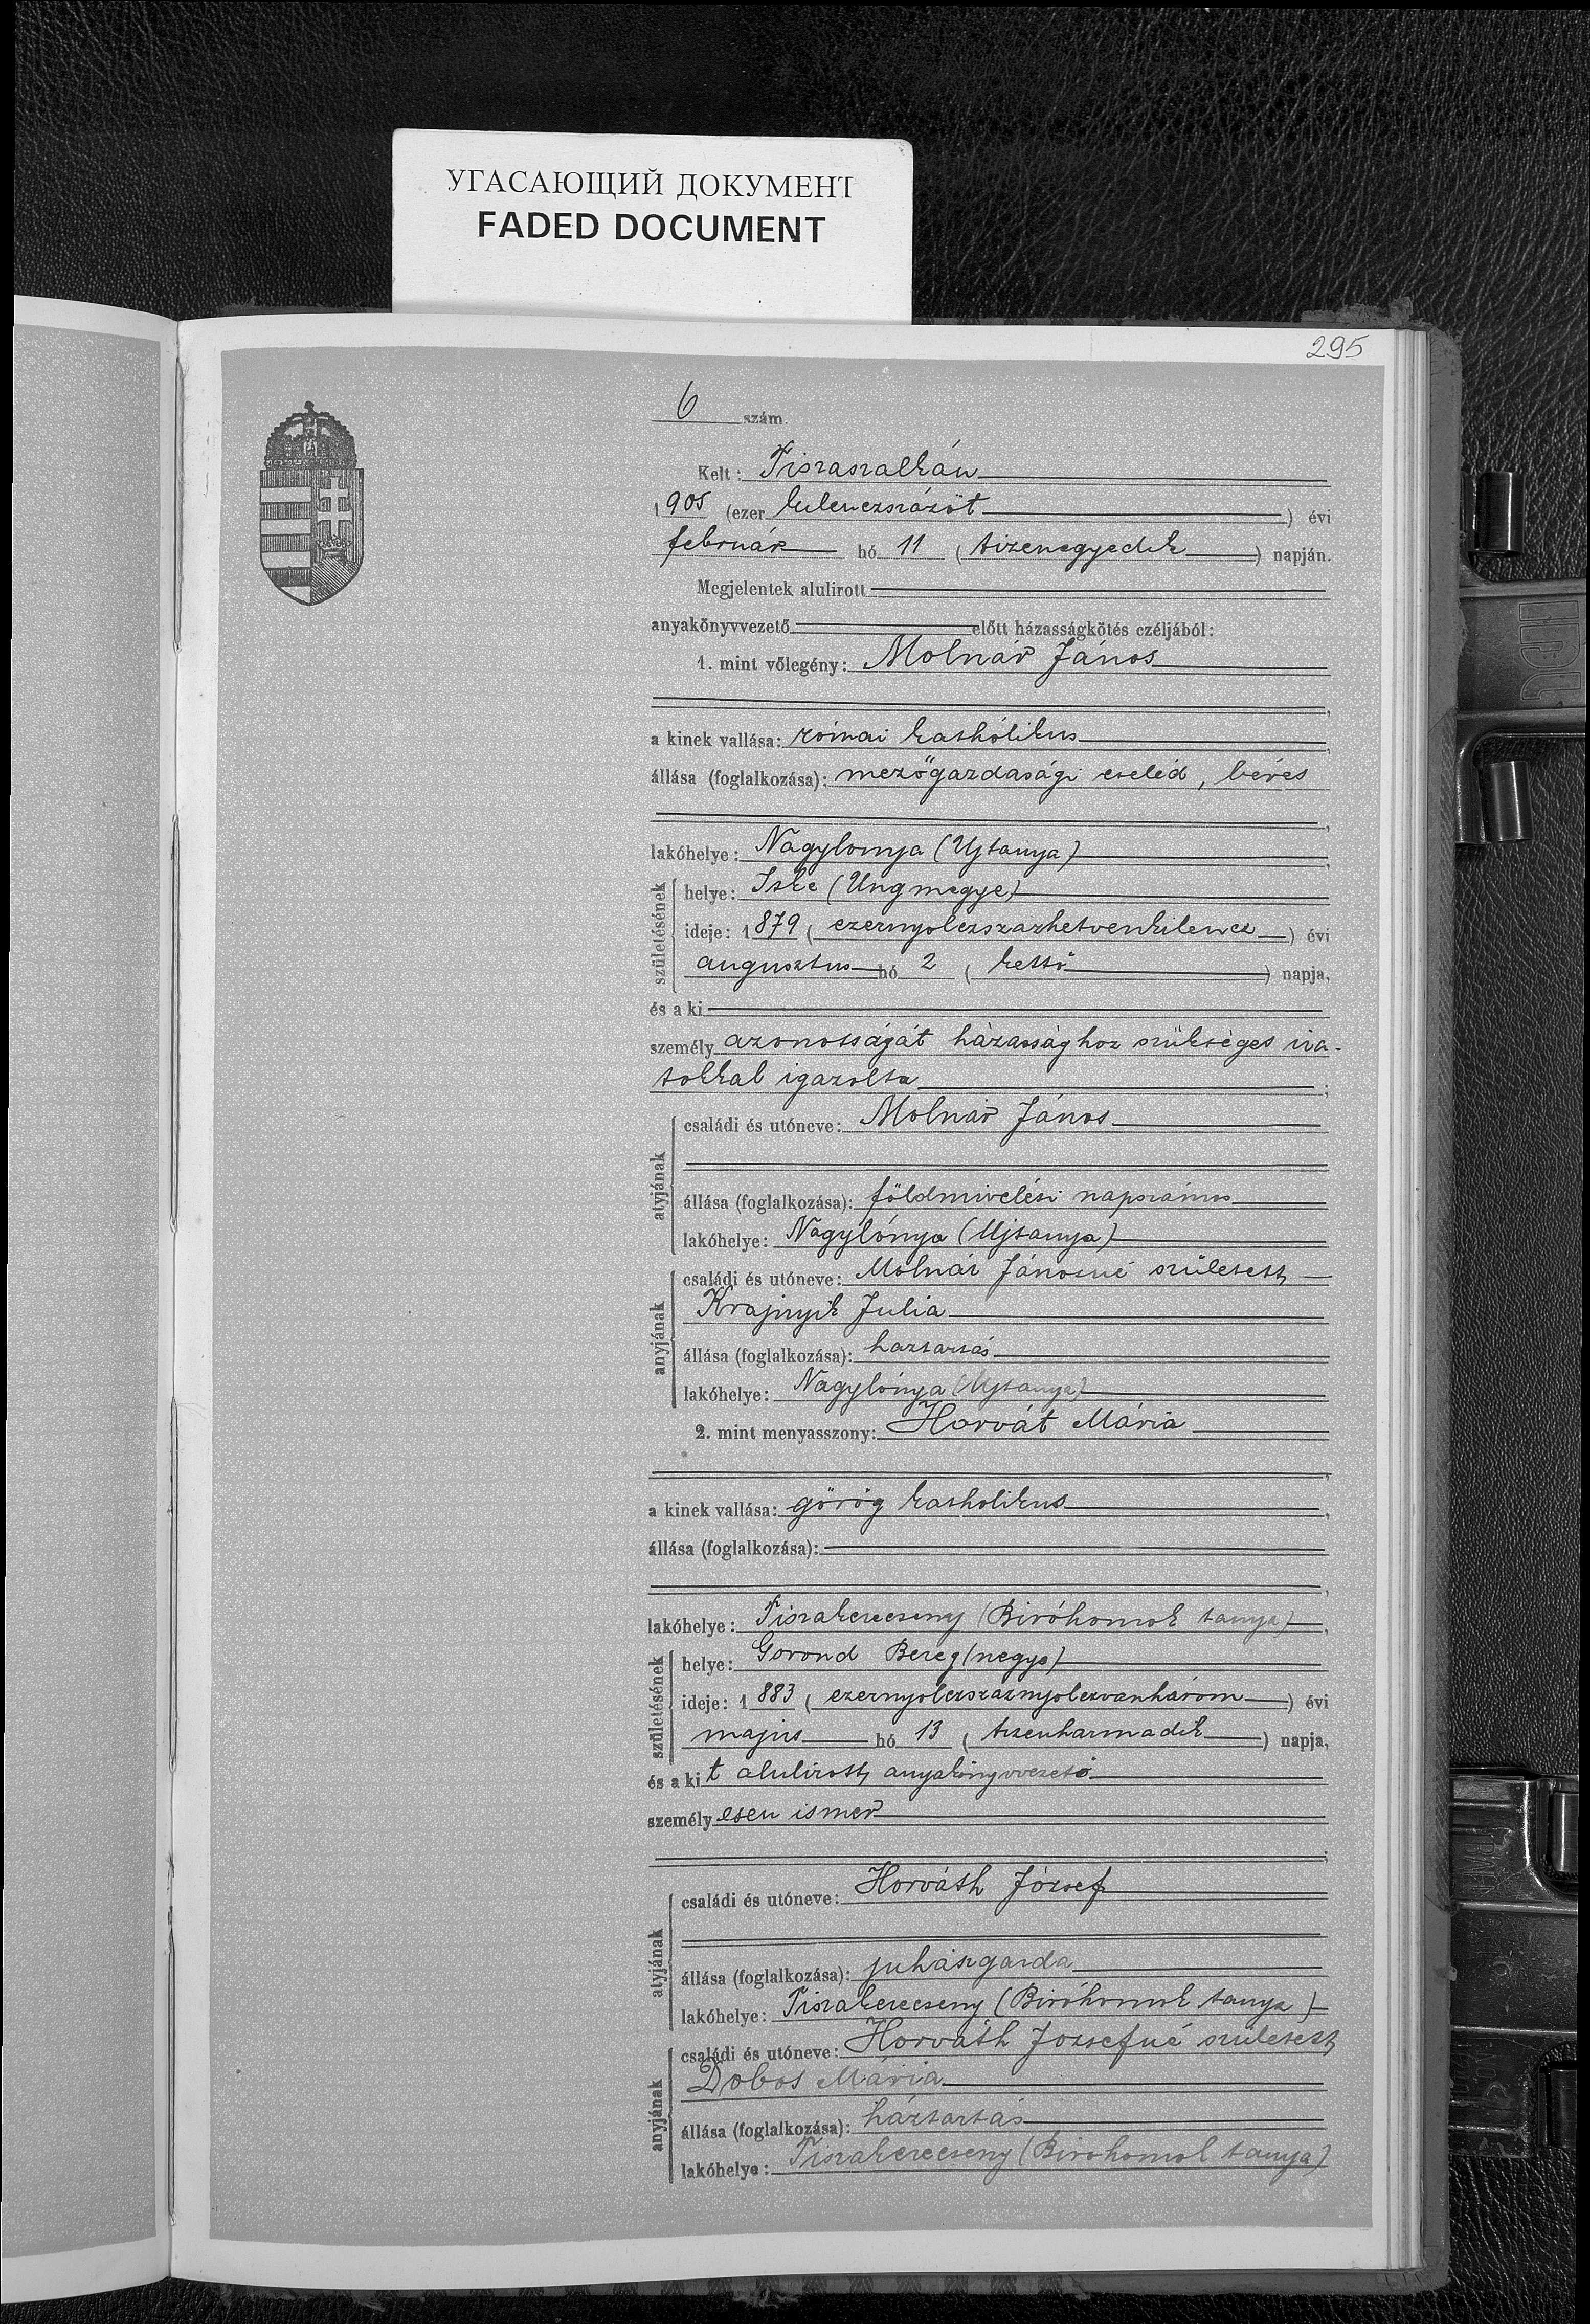 УГАСАЮЩИЙ ДОКУМЕНТ
FADED DOCUMENT
295
6 szám.
Kelt: Tiszaszalkán
1905 (ezer kilenczszázöt) évi
február hó 11 (tizenegyedik) napján.
Megjelentek alulirott
anyakönyvvezető előtt házasságkötés czéljából:
1. mint vőlegény: Molnár János
a kinek vallása: római katholikus
állása (foglalkozása): mezőgazdasági cseléd, béres
lakóhelye: Nagylonya (Ujtanya)
születésének helye: Iske (Ungmegye)
ideje: 1879 (ezernyolczszazhetvenkilencz) évi
augusztus hó 2 (kettő) napja,
és a ki
személy azonosságát házassághoz szükséges ira-
tokkal igazolta
atyjának családi és utóneve: Molnár János
állása (foglalkozása): földmivelési napszámos
lakóhelye: Nagylónya (Ujtanya)
anyjának családi és utóneve: Molnár Jánosné született
Krajnyik Julia
állása (foglalkozása): haztartás
lakóhelye: Nagylónya (Ujtanya)
2. mint menyasszony: Horvát Mária
a kinek vallása: görög katholikus
állása (foglalkozása):
lakóhelye: Tiszakerecseny (Biróhomok tanya)
születésének helye: Gorond Bereg(megye)
ideje: 1883 (ezernyolczszaznyolczvanhárom) évi
majus hó 13 (tizenharmadik) napja,
és a kit alulirott anyakönyvvezető
személyesen ismer
atyjának családi és utóneve: Horváth József
állása (foglalkozása): juhászgazda
lakóhelye: Tiszakerecseny (Biróhomok tanya)
anyjának családi és utóneve: Horváth Jozsefné született
Dobos Mária
állása (foglalkozása): háztartás
lakóhelye: Tiszakerecseny (Birohomok tanya)